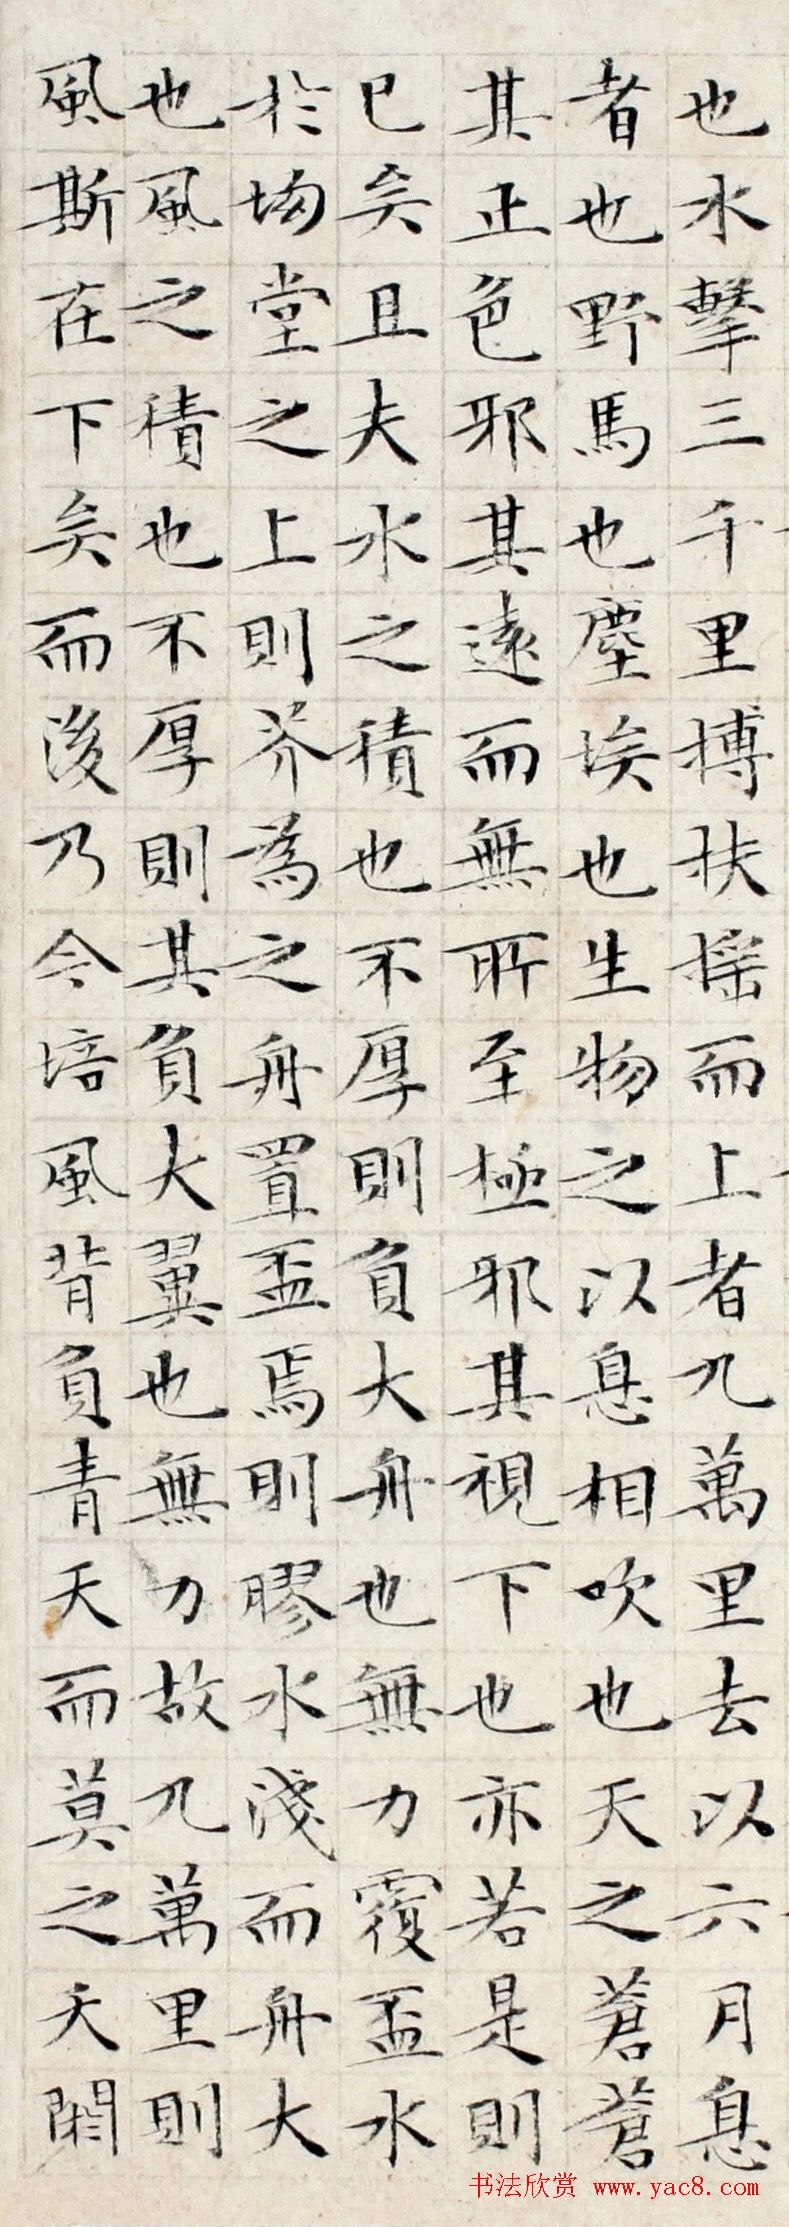 也水擊三千里搏扶摇而上者九萬里去以六月息
者也野馬也塵埃也生物之以息相吹也天之蒼蒼
其正色邪其遠而無所至極邪其視下也亦若是則
已矣且夫水之積也不厚則負大舟也無力覆盃水
於坳堂之上則芥為之舟置盃焉則膠水淺而舟大
也風之積也不厚則其負大翼也無力故九萬里則
風斯在下矣而後乃今培風背負青天而莫之夭閼
书法欣赏 www.yac8.com